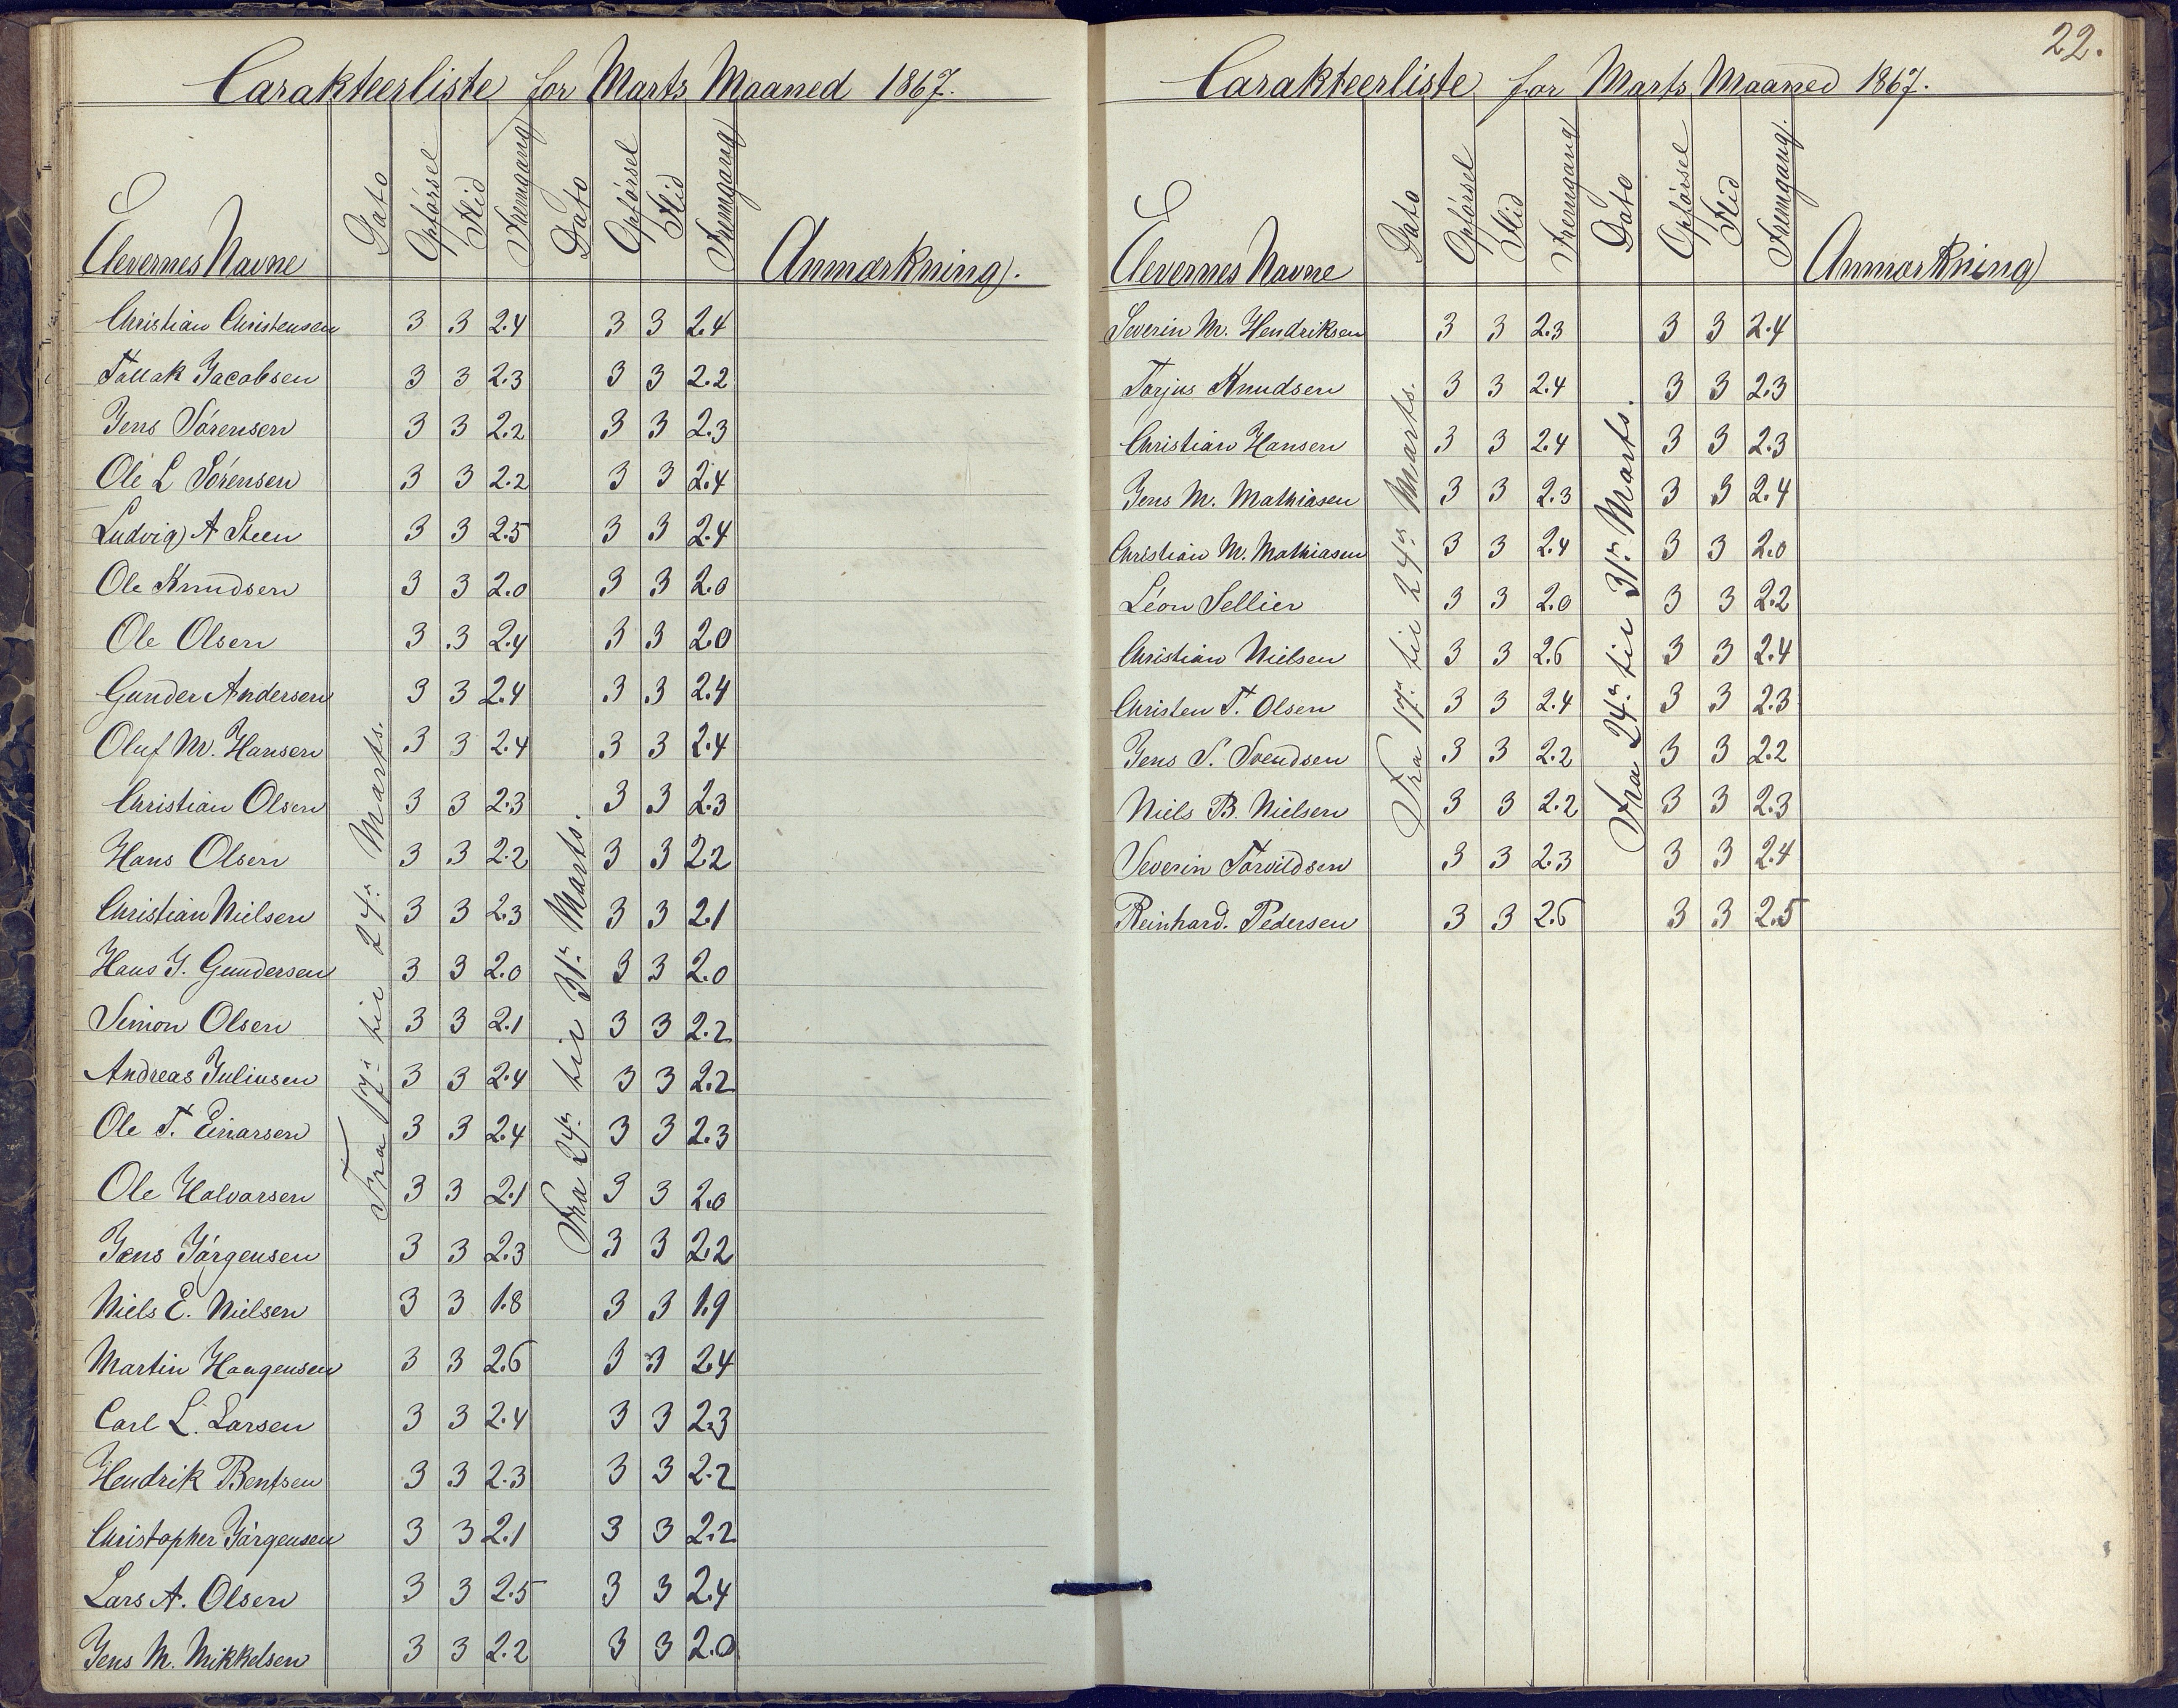 Carakteerliste for Marts Maaned 1867.
Elevernes Navne Dato Opførsel Flid Fremgang Dato Opførsel Flid Fremgang Anmærkning.
Fra 17de til 24de Marts.
Fra 24de til 31te Marts.
Christian Christensen 3 3 2.4 3 3 2.4
Tallak Jacobsen 3 3 2.3 3 3 2.2
Jens Sørensen 3 3 2.2 3 3 2.3
Ole L Sørensen 3 3 2.2 3 3 2.4
Ludvig A Steen 3 3 2.5 3 3 2.4
Ole Knudsen 3 3 2.0 3 3 2.0
Ole Olsen 3 3 2.4 3 3 2.0
Gunder Andersen 3 3 2.4 3 3 2.4
Oluf M. Hansen 3 3 2.4 3 3 2.4
Christian Olsen 3 3 2.3 3 3 2.3
Hans Olsen 3 3 2.2 3 3 2.2
Christian Nielsen 3 3 2.3 3 3 2.1
Hans J. Gundersen 3 3 2.0 3 3 2.0
Simon Olsen 3 3 2.1 3 3 2.2
Andreas Juliusen 3 3 2.4 3 3 2.2
Ole T. Einarsen 3 3 2.4 3 3 2.3
Ole Halvorsen 3 3 2.1 3 3 2.0
Jens Jørgensen 3 3 2.3 3 3 2.2
Niels E. Nielsen 3 3 1.8 3 3 1.9
Martin Haagensen 3 3 2.6 3 3 2.4
Carl L. Larsen 3 3 2.4 3 3 2.3
Hendrik Bentsen 3 3 2.3 3 3 2.2
Christopher Jørgensen 3 3 2.1 3 3 2.2
Lars A. Olsen 3 3 2.5 3 3 2.4
Jens M. Mikkelsen 3 3 2.2 3 3 2.0
22.
Carakteerliste for Marts Maaned 1867.
Elevernes Navne Dato Opførsel Flid Fremgang Dato Opførsel Flid Fremgang. Anmærkning
Fra 17de til 24de Marts.
Fra 24de til 31te Marts.
Severin M. Hendriksen 3 3 2.3 3 3 2.4
Torjus Knudsen 3 3 2.4 3 3 2.3
Christian Hansen 3 3 2.4 3 3 2.3
Jens M. Mathiasen 3 3 2.3 3 3 2.4
Christian M. Mathiasen 3 3 2.4 3 3 2.0
Léon Sellier 3 3 2.0 3 3 2.2
Christian Nielsen 3 3 2.6 3 3 2.4
Christen T. Olsen 3 3 2.4 3 3 2.3
Jens S. Svendsen 3 3 2.2 3 3 2.2
Niels B. Nielsen 3 3 2.2 3 3 2.3
Severin Torvildsen 3 3 2.3 3 3 2.4
Reinhard. Pedersen 3 3 2.6 3 3 2.5